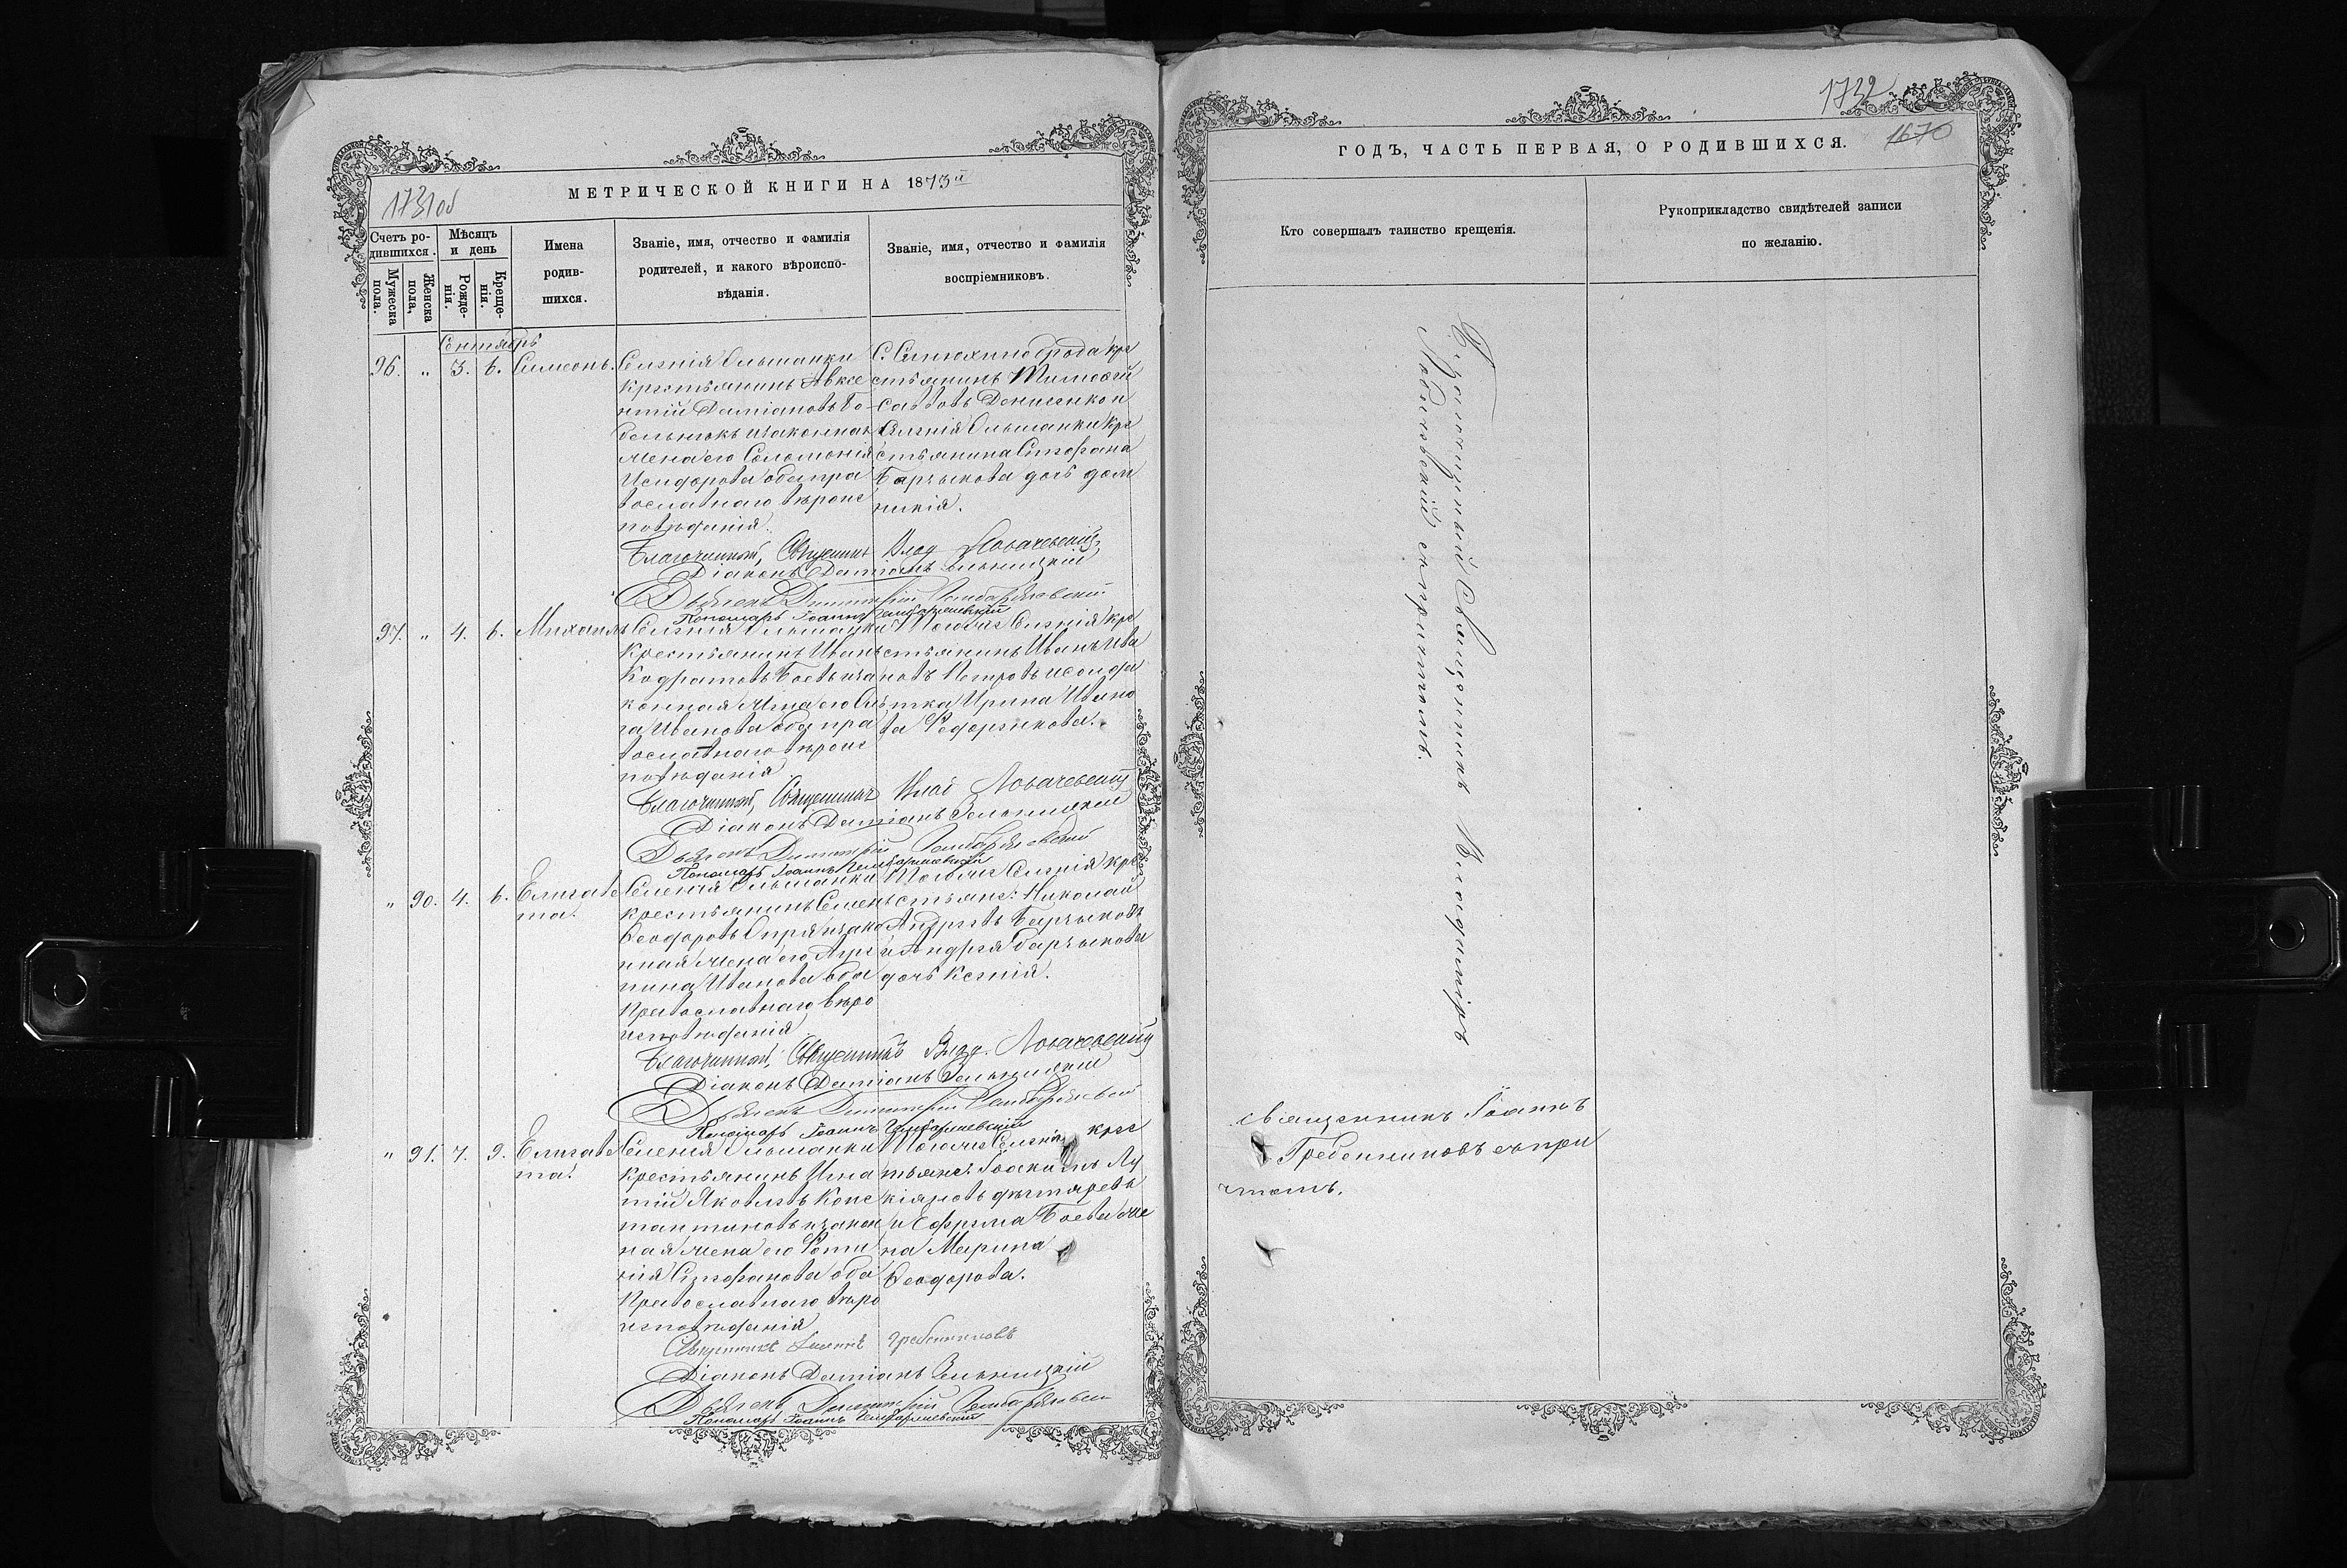 1731об
МЕТРИЧЕСКОЙ КНИГИ НА 1873й
Счетъ ро-
дившихся.
Мужеска
пола.
Женска
пола,
Мѣсяцъ
и день
Рожде-
нія.
Креще-
нія.
Имена
родив-
шихся.
Званіе, имя, отчество и фамилія
родителей, и какого вѣроиспо-
вѣданія.
Званіе, имя, отчество и фамилія
воспріемниковъ.
Сентябрь
96. „ 3. 6. Симеонъ.
Селенія Ольшанки
крестьянинъ Авксе
нтій Даміановъ
и законная
жена его Соломонія
Исидорова оба пра
вославнаго вѣроис
повѣданія.
С. Синюхино брода кре
стьянинъ Тимоѳей
Саввовъ Денисенко и
Селенія Ольшанки кре
стьянина Стефана
Барчькова дочь дом
никія.
Благочинный, Священникъ Влад Ловачевскій
Діаконъ Даміанъ
Дьячекъ Димитрій
Пономарь Іоаннъ
97. „ 4. 6. Михаилъ
Селенія Ольшанки
Крестьянинъ Иванъ
Кодратовъ Боевъ и за
конная жена его
Иванова оба пра
вославнаго вѣроис
повѣданія
Тогоже Селенія кре
стьянинъ Иванъ Ива
новъ Петровъ и солда
тка Ирина Ивано
ва Федоренкова.
Благочинный, Священникъ Влад Ловачевскій
Діаконъ Даміанъ
Дьячекъ Димитрій
Пономарь Іоаннъ
„ 90. 4. 6. Елизаве
та.
Селенія Ольшанки
крестьянинъ Семенъ
Ѳеодоровъ Опря и зако
нная жена его Агри
пина Иванова оба
Православнаго вѣро
исповѣданія
Тогоже Селенія кре
стьяне: Николай
Андреевъ Барчьковъ
и Андрея Барчькова
дочь Ксенія.
Благочинный, Священникъ Влад. Ловачевскій
Діаконъ Даміанъ
Дьячекъ Димитрій
Пономарь Іоаннъ
„ 91. 7. 9. Елизаве
та.
Селенія Ольшанки
Крестьянинъ Игна
тій Яковлевъ Конс
тантиновъ и закон
ная жена его Фоти
нія Стефанова оба
Православнаго вѣро
исповѣданія
Тогоже Селенія крес
тьяне: Іоакимъ Лу
кіановъ дегтяревъ
и Ефрема Боева же
на Марина
Ѳеодорова.
Священникъ Іоаннъ Гребенниковъ
Діаконъ Даміанъ
Дьячекъ Димитрій
Пономарь Іоаннъ
1732
1670
ГОДЪ, ЧАСТЬ ПЕРВАЯ, О РОДИВШИХСЯ.
Кто совершалъ таинство крещенія.
Рукоприкладство свидѣтелей записи
по желанію.
Благочинный Священникъ Владиміръ
Ловачевскій съ причтомъ.
священникъ Іоаннъ
Гребенниковъ съ при
чтомъ.